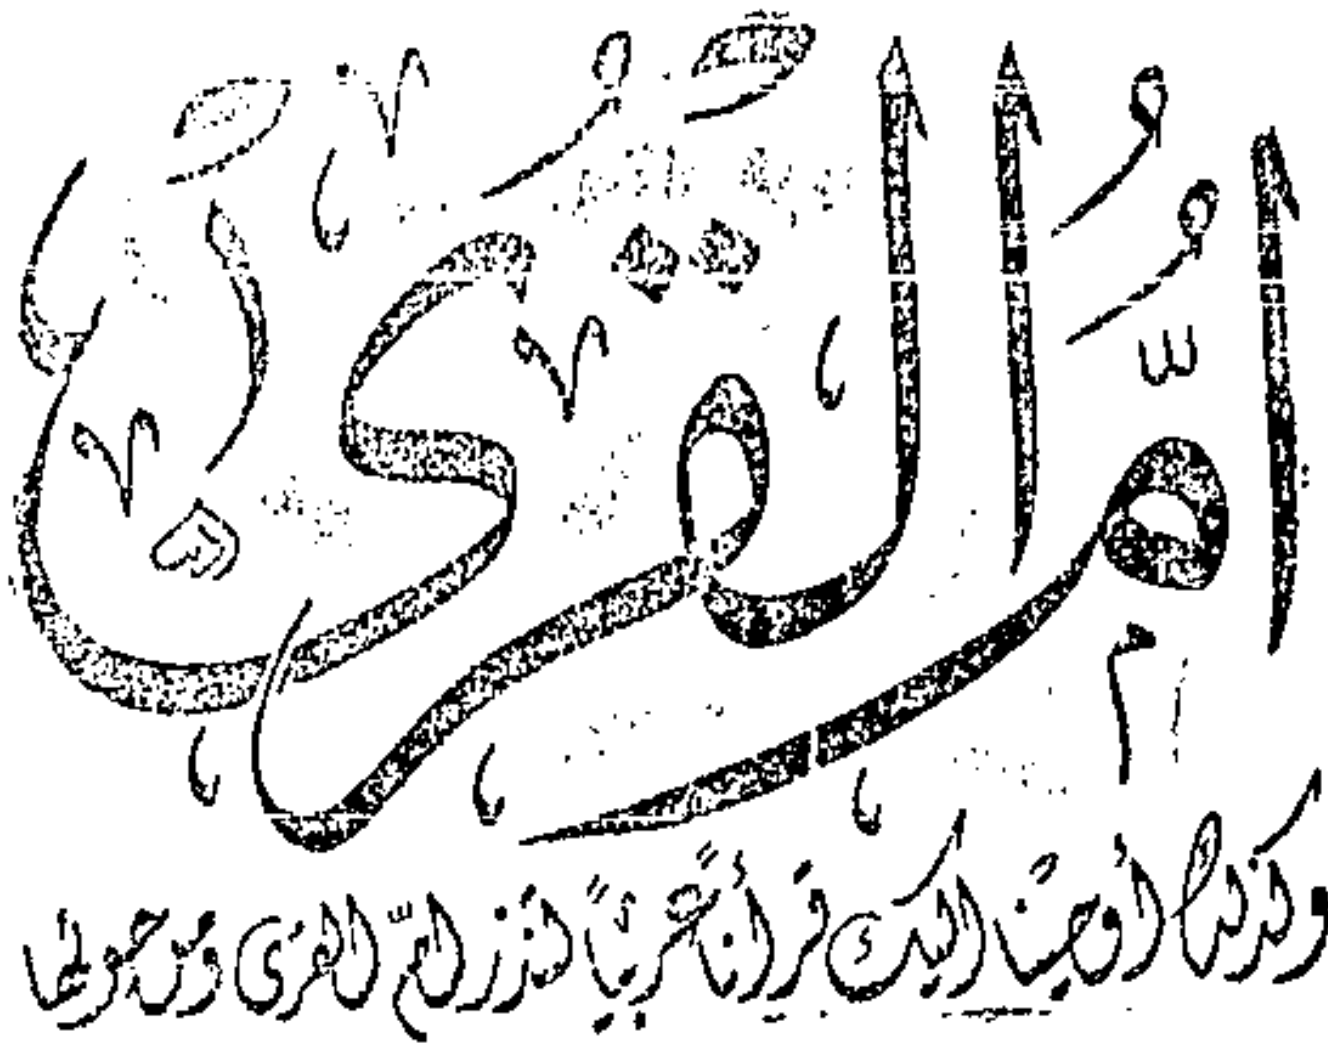 أُمُّ القُرى
وكذلك أوحينا اليك قرأناً عربياً لتنذر امّ القرى ومن حولها